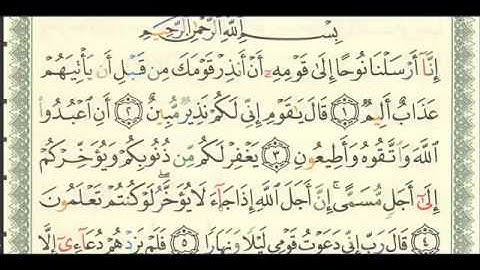 بِسْمِ اللَّهِ الرَّحْمَٰنِ الرَّحِيمِ
إِنَّا أَرْسَلْنَا نُوحًا إِلَىٰ قَوْمِهِ أَنْ أَنذِرْ قَوْمَكَ مِن قَبْلِ أَن يَأْتِيَهُمْ
عَذَابٌ أَلِيمٌ ١ قَالَ يَٰقَوْمِ إِنِّي لَكُمْ نَذِيرٌ مُّبِينٌ ٢ أَنِ اعْبُدُوا
اللَّهَ وَاتَّقُوهُ وَأَطِيعُونِ ٣ يَغْفِرْ لَكُم مِّن ذُنُوبِكُمْ وَيُؤَخِّرْكُمْ
إِلَىٰ أَجَلٍ مُّسَمًّى إِنَّ أَجَلَ اللَّهِ إِذَا جَاءَ لَا يُؤَخَّرُ ۖ لَوْ كُنتُمْ تَعْلَمُونَ
٤ قَالَ رَبِّ إِنِّي دَعَوْتُ قَوْمِي لَيْلًا وَنَهَارًا ٥ فَلَمْ يَزِدْهُمْ دُعَاءِي إِلَّا